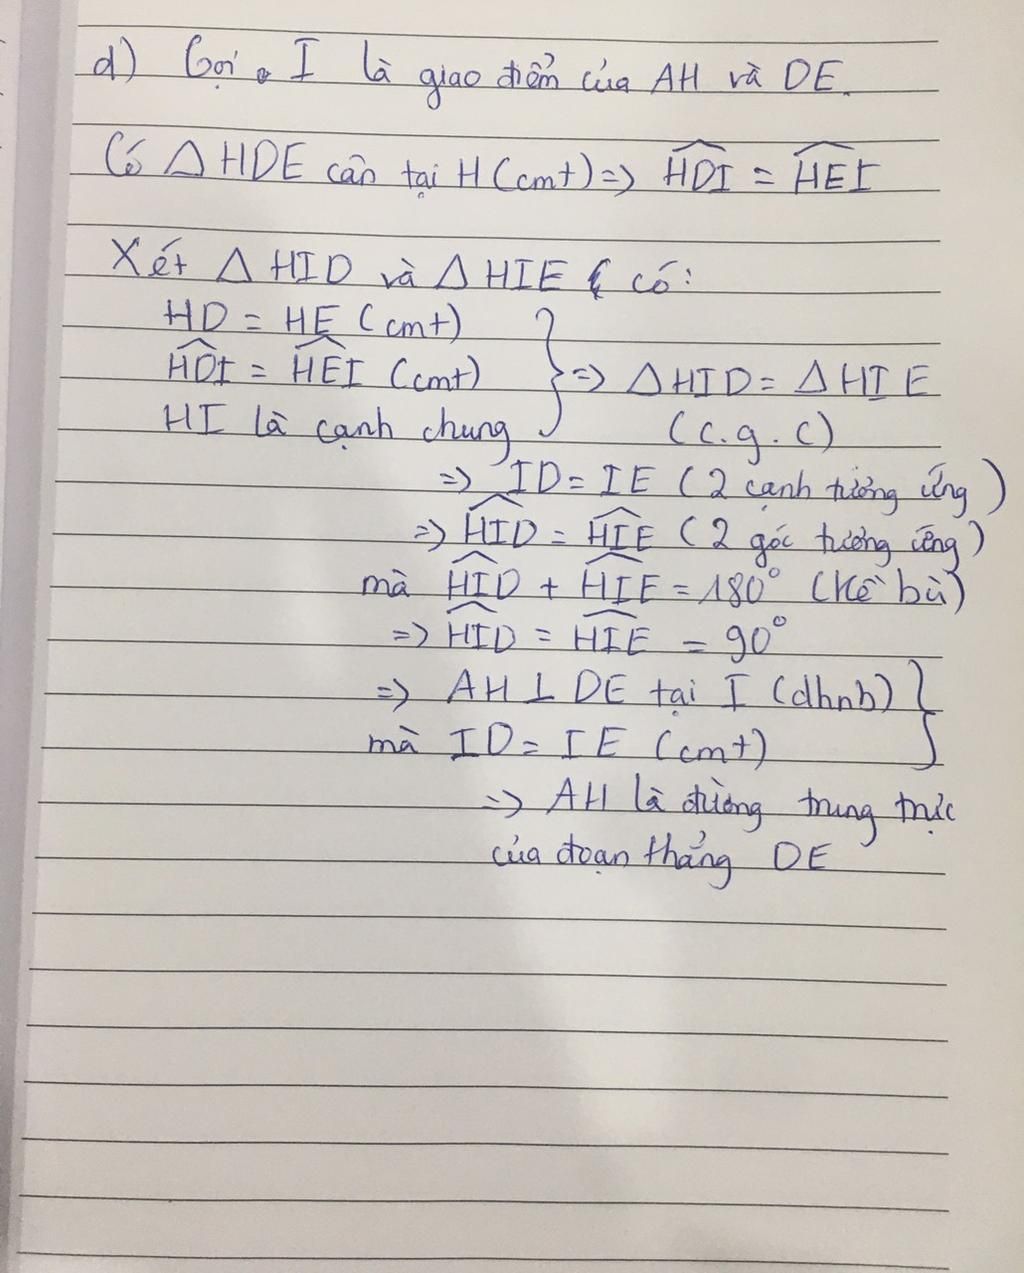 d) Gọi I là giao điểm của AH và DE.
Có △HDE cân tại H (cmt) => \widehat{HDI} = \widehat{HEI}
Xét △HID và △HIE có:
HD = HE (cmt)
\widehat{HDI} = \widehat{HEI} (cmt) } => △HID = △HIE
HI là cạnh chung (c.g.c)
=> ID = IE (2 cạnh tương ứng)
=> \widehat{HID} = \widehat{HIE} (2 góc tương ứng)
mà \widehat{HID} + \widehat{HIE} = 180° (kề bù)
=> \widehat{HID} = \widehat{HIE} = 90°
=> AH ⊥ DE tại I (dhnb) }
mà ID = IE (cmt)
=> AH là đường trung trực
của đoạn thẳng DE